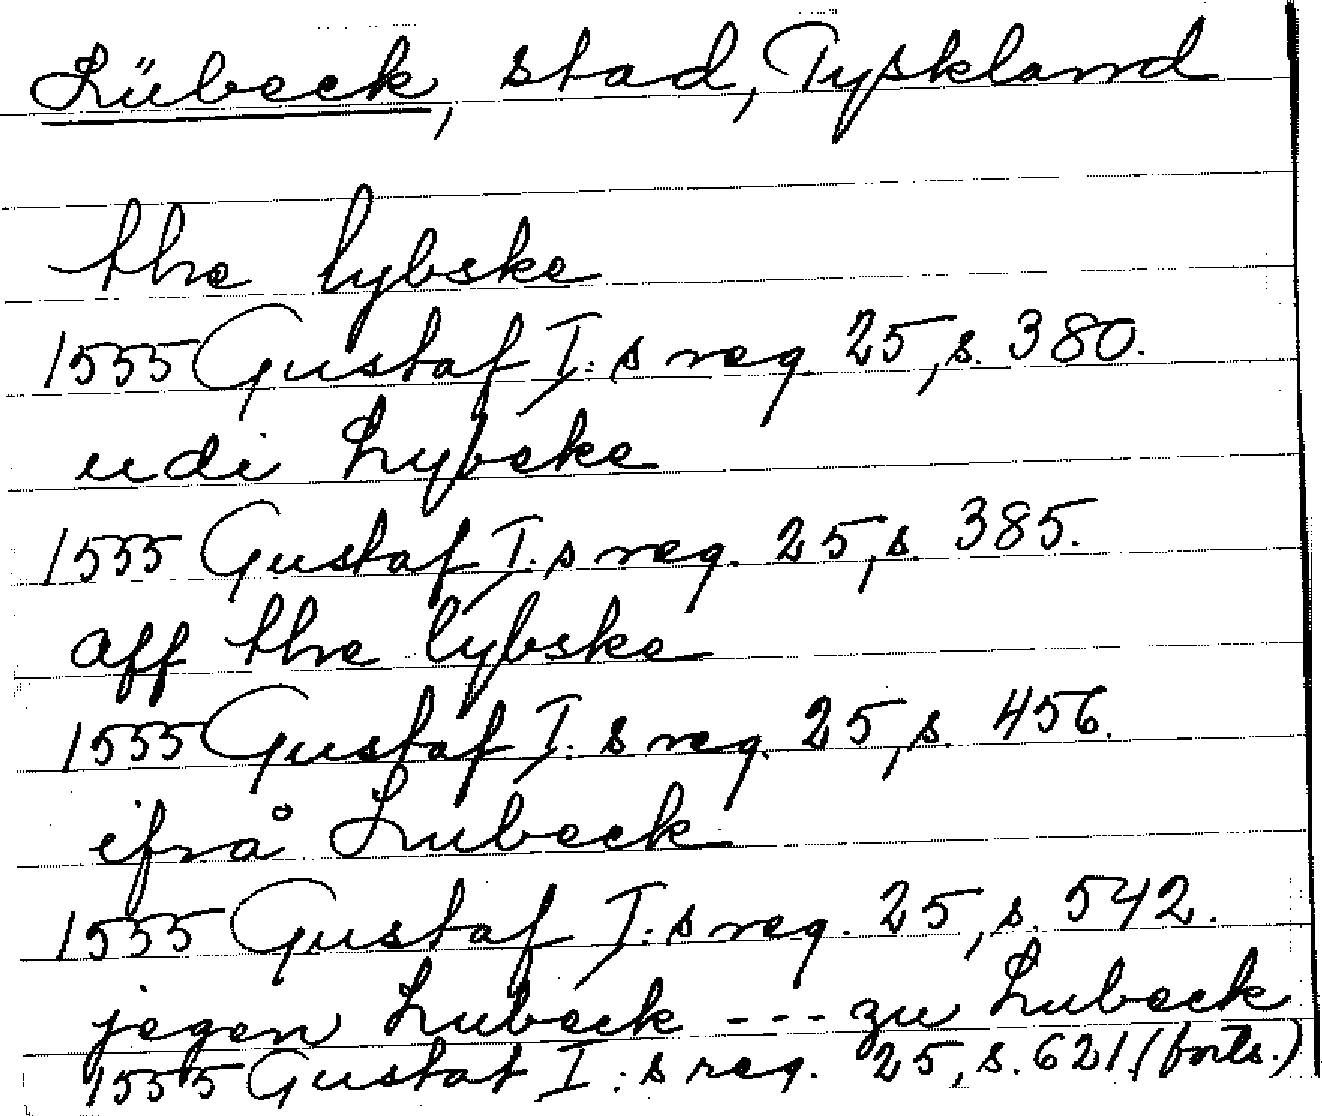 Lübeck, stad, Tyskland
the lybske
1555 Gustaf I:s reg. 25, s. 380.
udi Lybeke
1555 Gustaf I:s reg. 25, s. 385.
aff the lybske
1555 Gustaf I:s reg. 25, s. 456.
ifrå Lubeck
1555 Gustaf I:s reg. 25, s. 542.
jegen Lubeck --- zu Lubeck
1555 Gustaf I:s reg. 25, s. 621. (forts.)